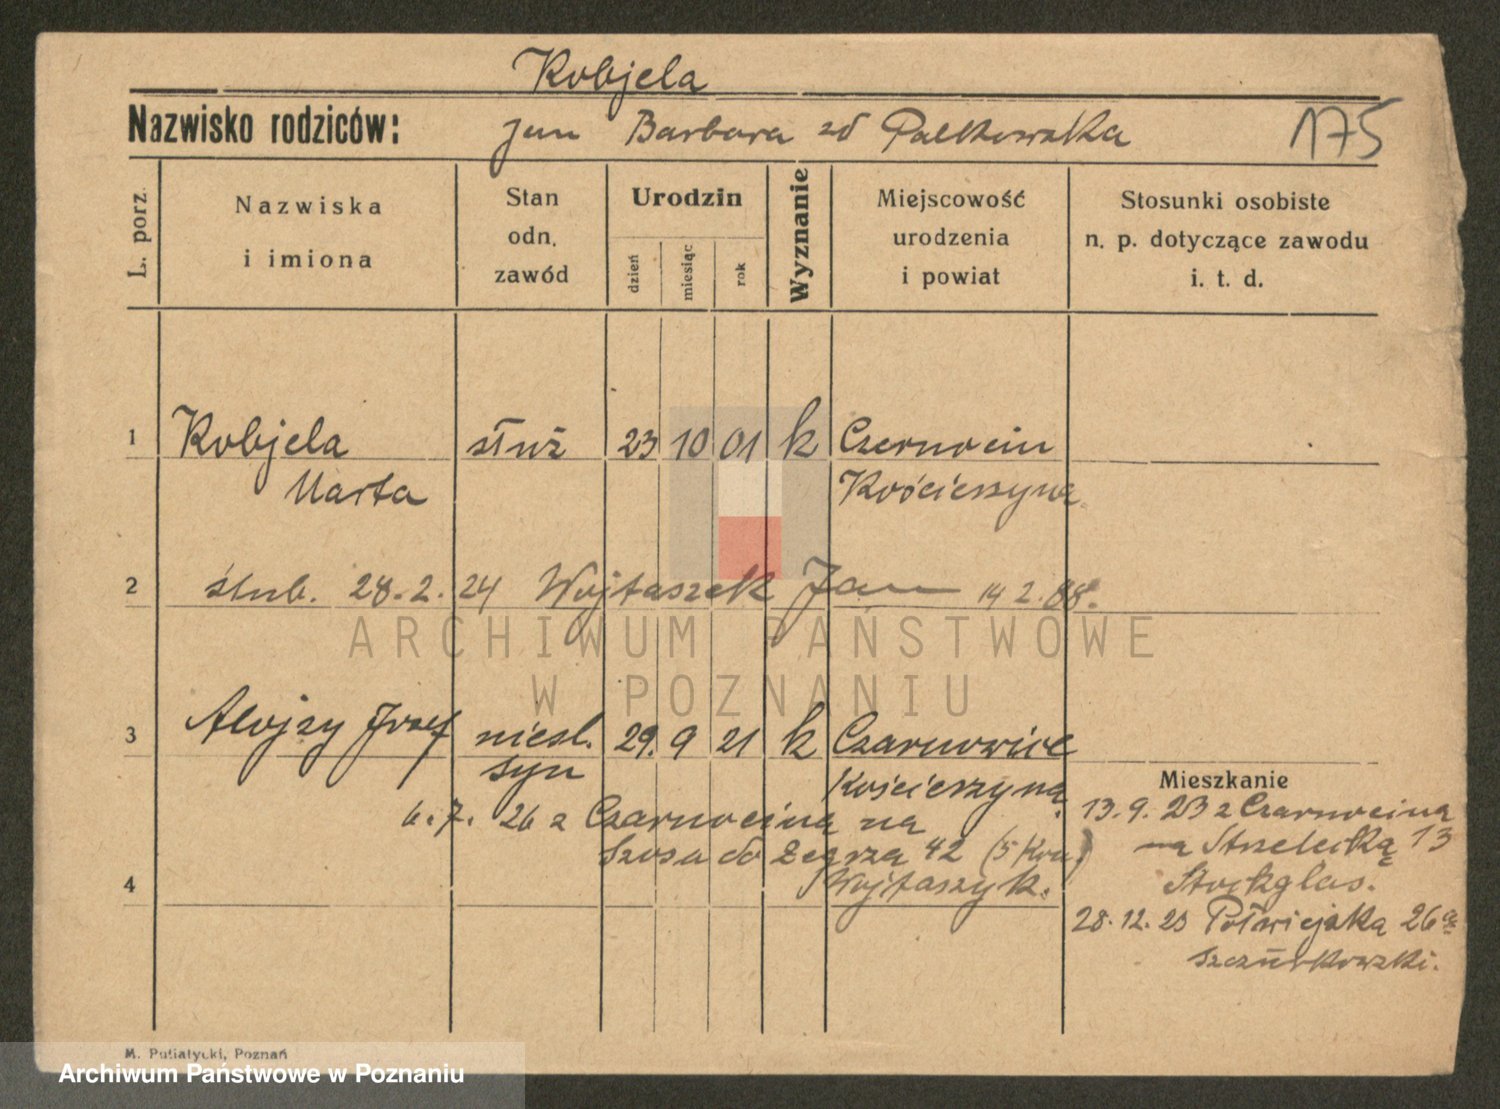 Kobjela
Nazwisko rodziców: Jan Barbara zd Palkowska 175
L. porz.
Nazwiska
i imiona
Stan
odn.
zawód
Urodzin
dzień
miesiąc
rok
Wyznanie
Miejscowość
urodzenia
i powiat
Stosunki osobiste
n. p. dotyczące zawodu
i. t. d.
1 Kobjela służ 23 10 01 k Czernocin
Marta Kościerzyna
2 ślub. 28. 2. 24 Wojtaszek Jan 14 2. 88.
ARCHIWUM PAŃSTWOWE
W POZNANIU
3 Alojzy Josef niesl. 29. 9 21 k Czarnowice
syn Kościerzyna
Mieszkanie
6. 7. 26 z Czarnocina na
Szosa do Żegrza 42
4 Wojtaszyk.
13. 9. 23 z Czarnocina
na Strzelecką 13
Stockglas.
28. 12. 23 Półwiejska 26a
Szczurkowski.
M. Putiatycki, Poznań
Archiwum Państwowe w Poznaniu